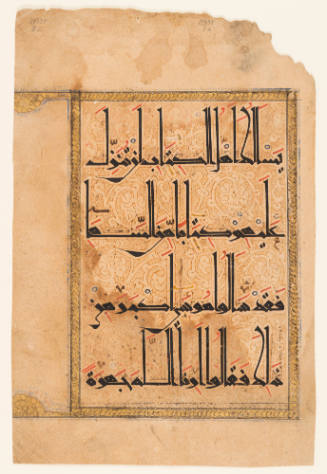 يسألك أهل الكتاب أن تنزل
عليهم كتابا من السماء
فقد سألوا موسى أكبر من
ذلك فقالوا أرنا الله جهرة